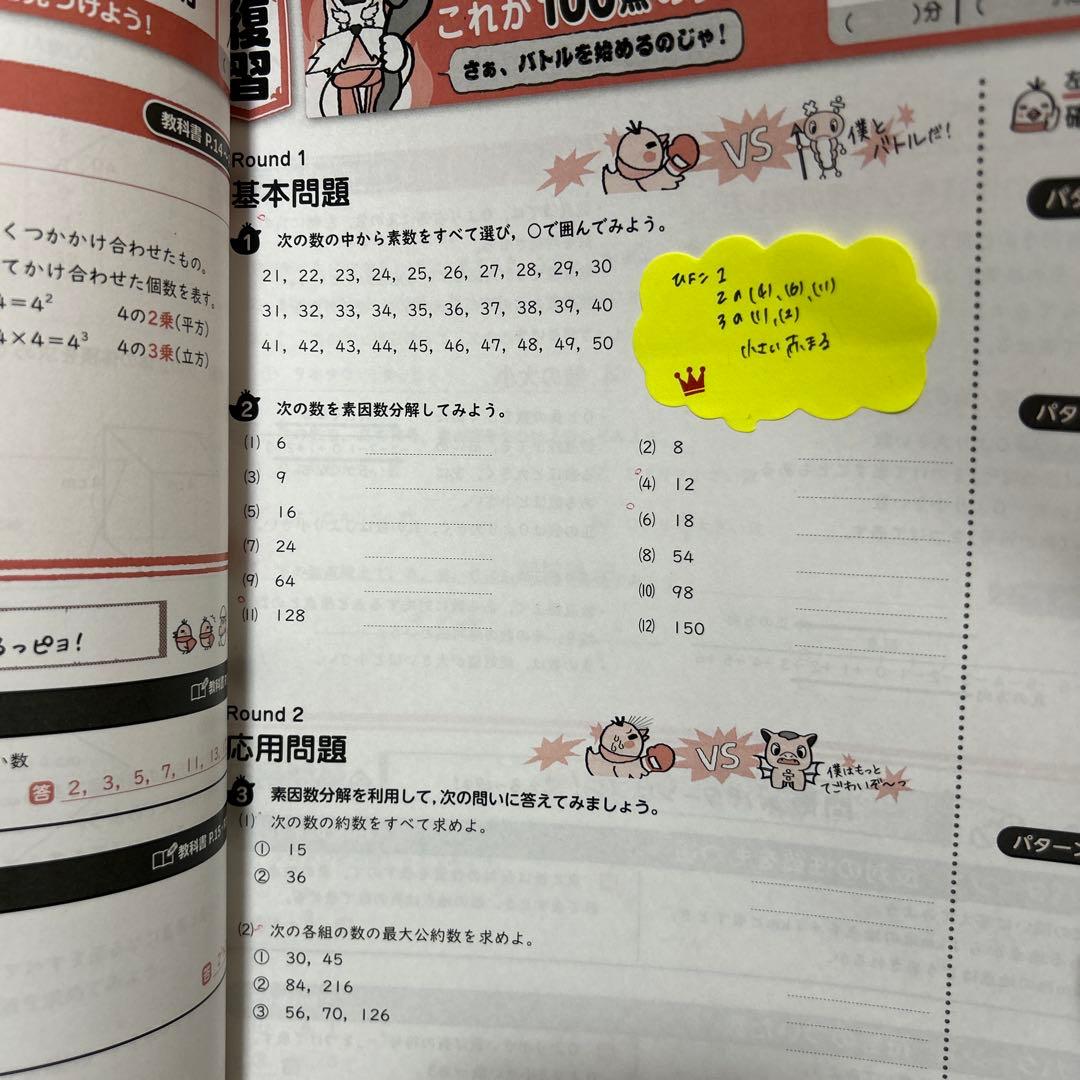 見つけよう!
教科書 P.14
くつかかけ合わせたもの。
てかけ合わせた個数を表す。
4=4² 4の2乗(平方)
4×4=4³ 4の3乗(立方)
るっピヨ!
教科書
い数
答 2, 3, 5, 7, 11, 13,
教科書 P.15
答
復習
これが100点の
( )分 (
さぁ、バトルを始めるのじゃ!
Round 1
基本問題
VS
僕と
バトルだ!
1 次の数の中から素数をすべて選び,○で囲んでみよう。
21, 22, 23, 24, 25, 26, 27, 28, 29, 30
31, 32, 33, 34, 35, 36, 37, 38, 39, 40
41, 42, 43, 44, 45, 46, 47, 48, 49, 50
1
2の(4),(6),(11)
3の(1),(2)
小さい赤まる
2 次の数を素因数分解してみよう。
(1) 6
(2) 8
(3) 9
(4) 12
(5) 16
(6) 18
(7) 24
(8) 54
(9) 64
(10) 98
(11) 128
(12) 150
Round 2
応用問題
VS
僕はもっと
てごわいぞ〜っ
3 素因数分解を利用して,次の問いに答えてみましょう。
(1) 次の数の約数をすべて求めよ。
① 15
② 36
(2) 次の各組の数の最大公約数を求めよ。
① 30, 45
② 84, 216
③ 56, 70, 126
左
確
パタ
パタ
パターン